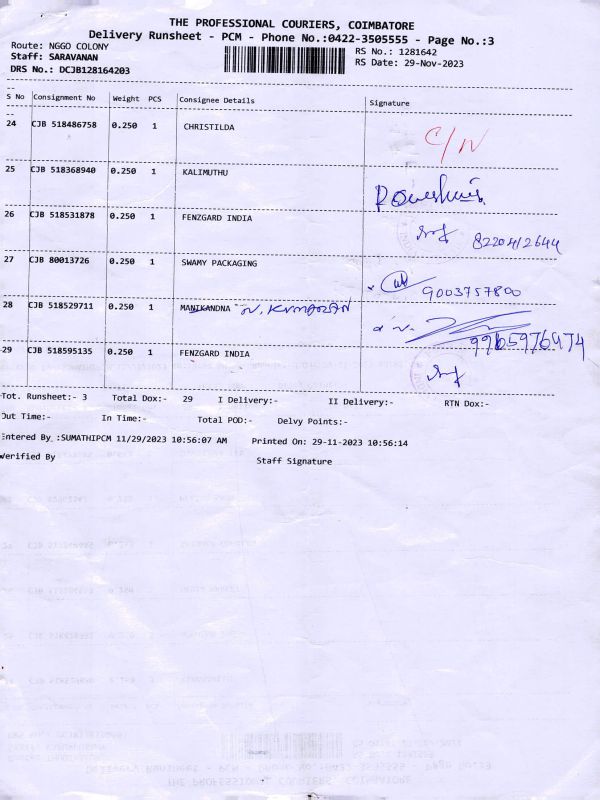 THE PROFESSIONAL COURIERS, COIMBATORE
Delivery Runsheet - PCM - Phone No.:0422-3505555 - Page No.:3
Route: NGGO COLONY RS No.: 1281642
Staff: SARAVANAN RS Date: 29-Nov-2023
DRS No.: DCJB128164203
S No Consignment No Weight PCS Consignee Details Signature
24 CJB 518486758 0.250 1 CHRISTILDA C/N
25 CJB 518368940 0.250 1 KALIMUTHU
26 CJB 518531878 0.250 1 FENZGARD INDIA 8220412644
27 CJB 80013726 0.250 1 SWAMY PACKAGING 9003757800
28 CJB 518529711 0.250 1 MANIKANDNA N. KUMARAN 9965976974
29 CJB 518595135 0.250 1 FENZGARD INDIA
Tot. Runsheet:- 3 Total Dox:- 29 I Delivery:- II Delivery:- RTN Dox:-
Out Time:- In Time:- Total POD:- Delvy Points:-
Entered By :SUMATHIPCM 11/29/2023 10:56:07 AM Printed On: 29-11-2023 10:56:14
Verified By Staff Signature